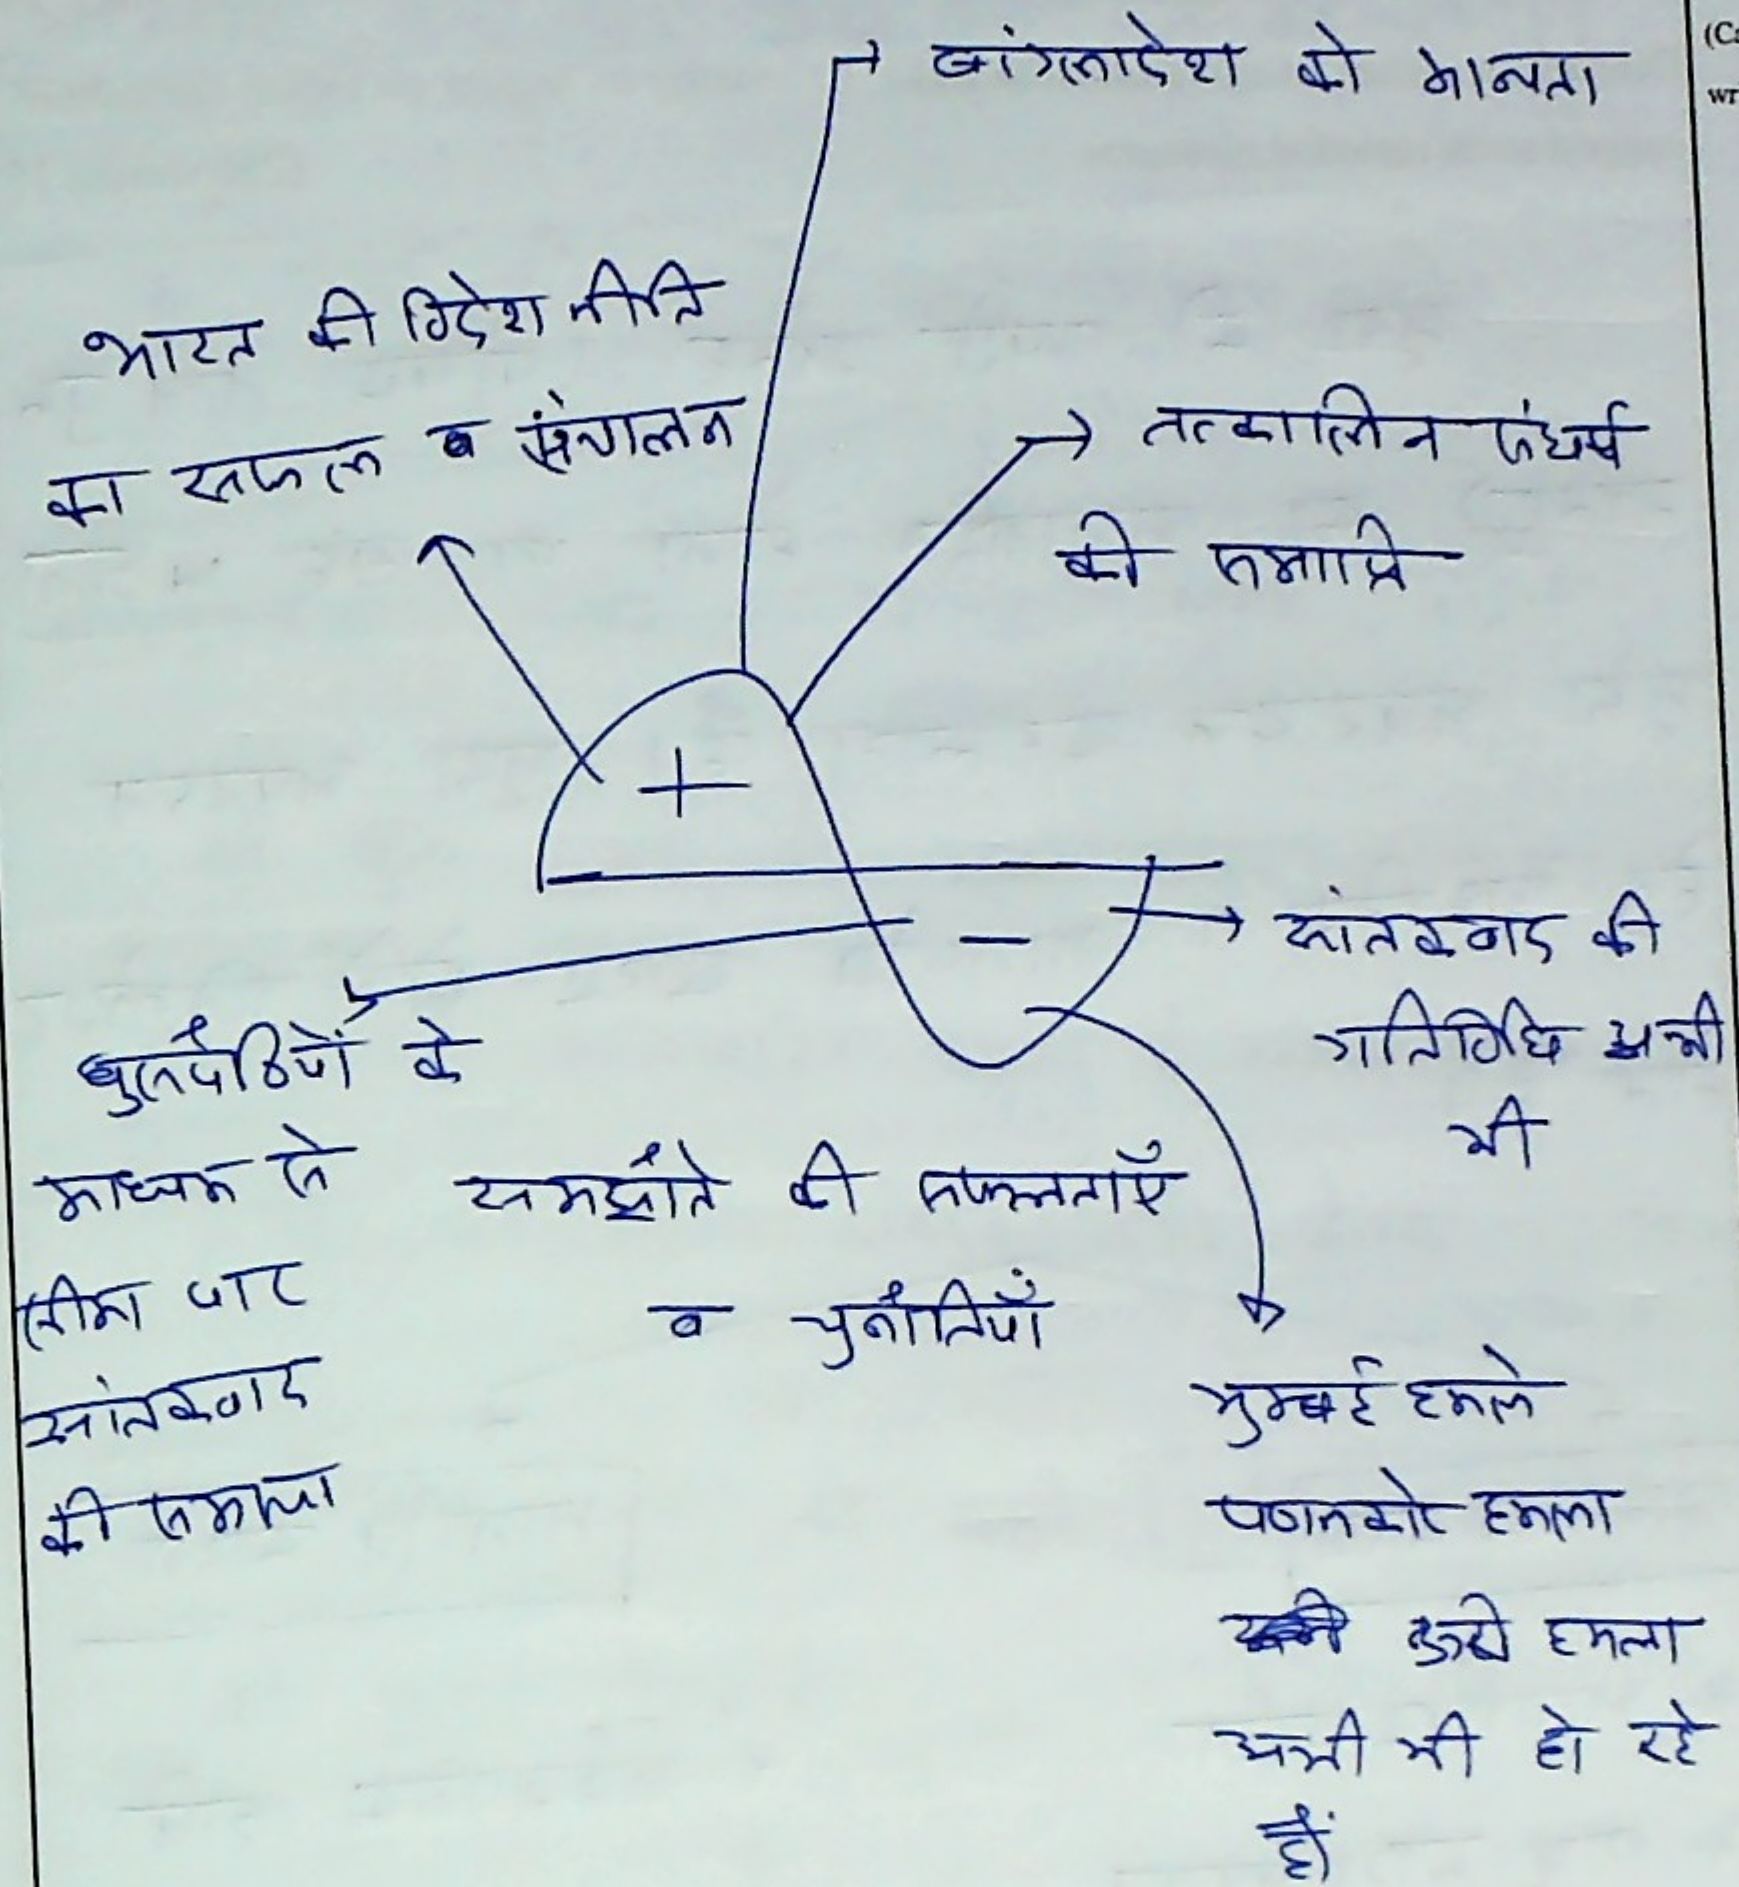 बांग्लादेश को मान्यता
भारत की विदेश नीति
का सफल व संचालन
तत्कालिन संघर्ष
की समाप्ति
+
−
आंतकवाद की
गतिविधि अभी
भी
घुसपैठियों के
माध्यम से
सीमा पार
आंतकवाद
की समस्या
समझौते की सफलताएँ
व चुनौतियाँ
मुम्बई हमले
पठानकोट हमला
हमला
अभी भी हो रहे
हैं